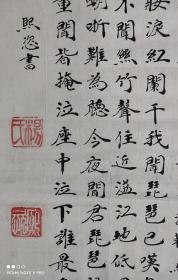 妝淚紅闌干我聞琵琶已嘆
不聞絲竹聲住近湓江地低
嘲哳難為聽今夜聞君琵琶
重聞皆掩泣座中泣下誰最
熙恣書
楊氏